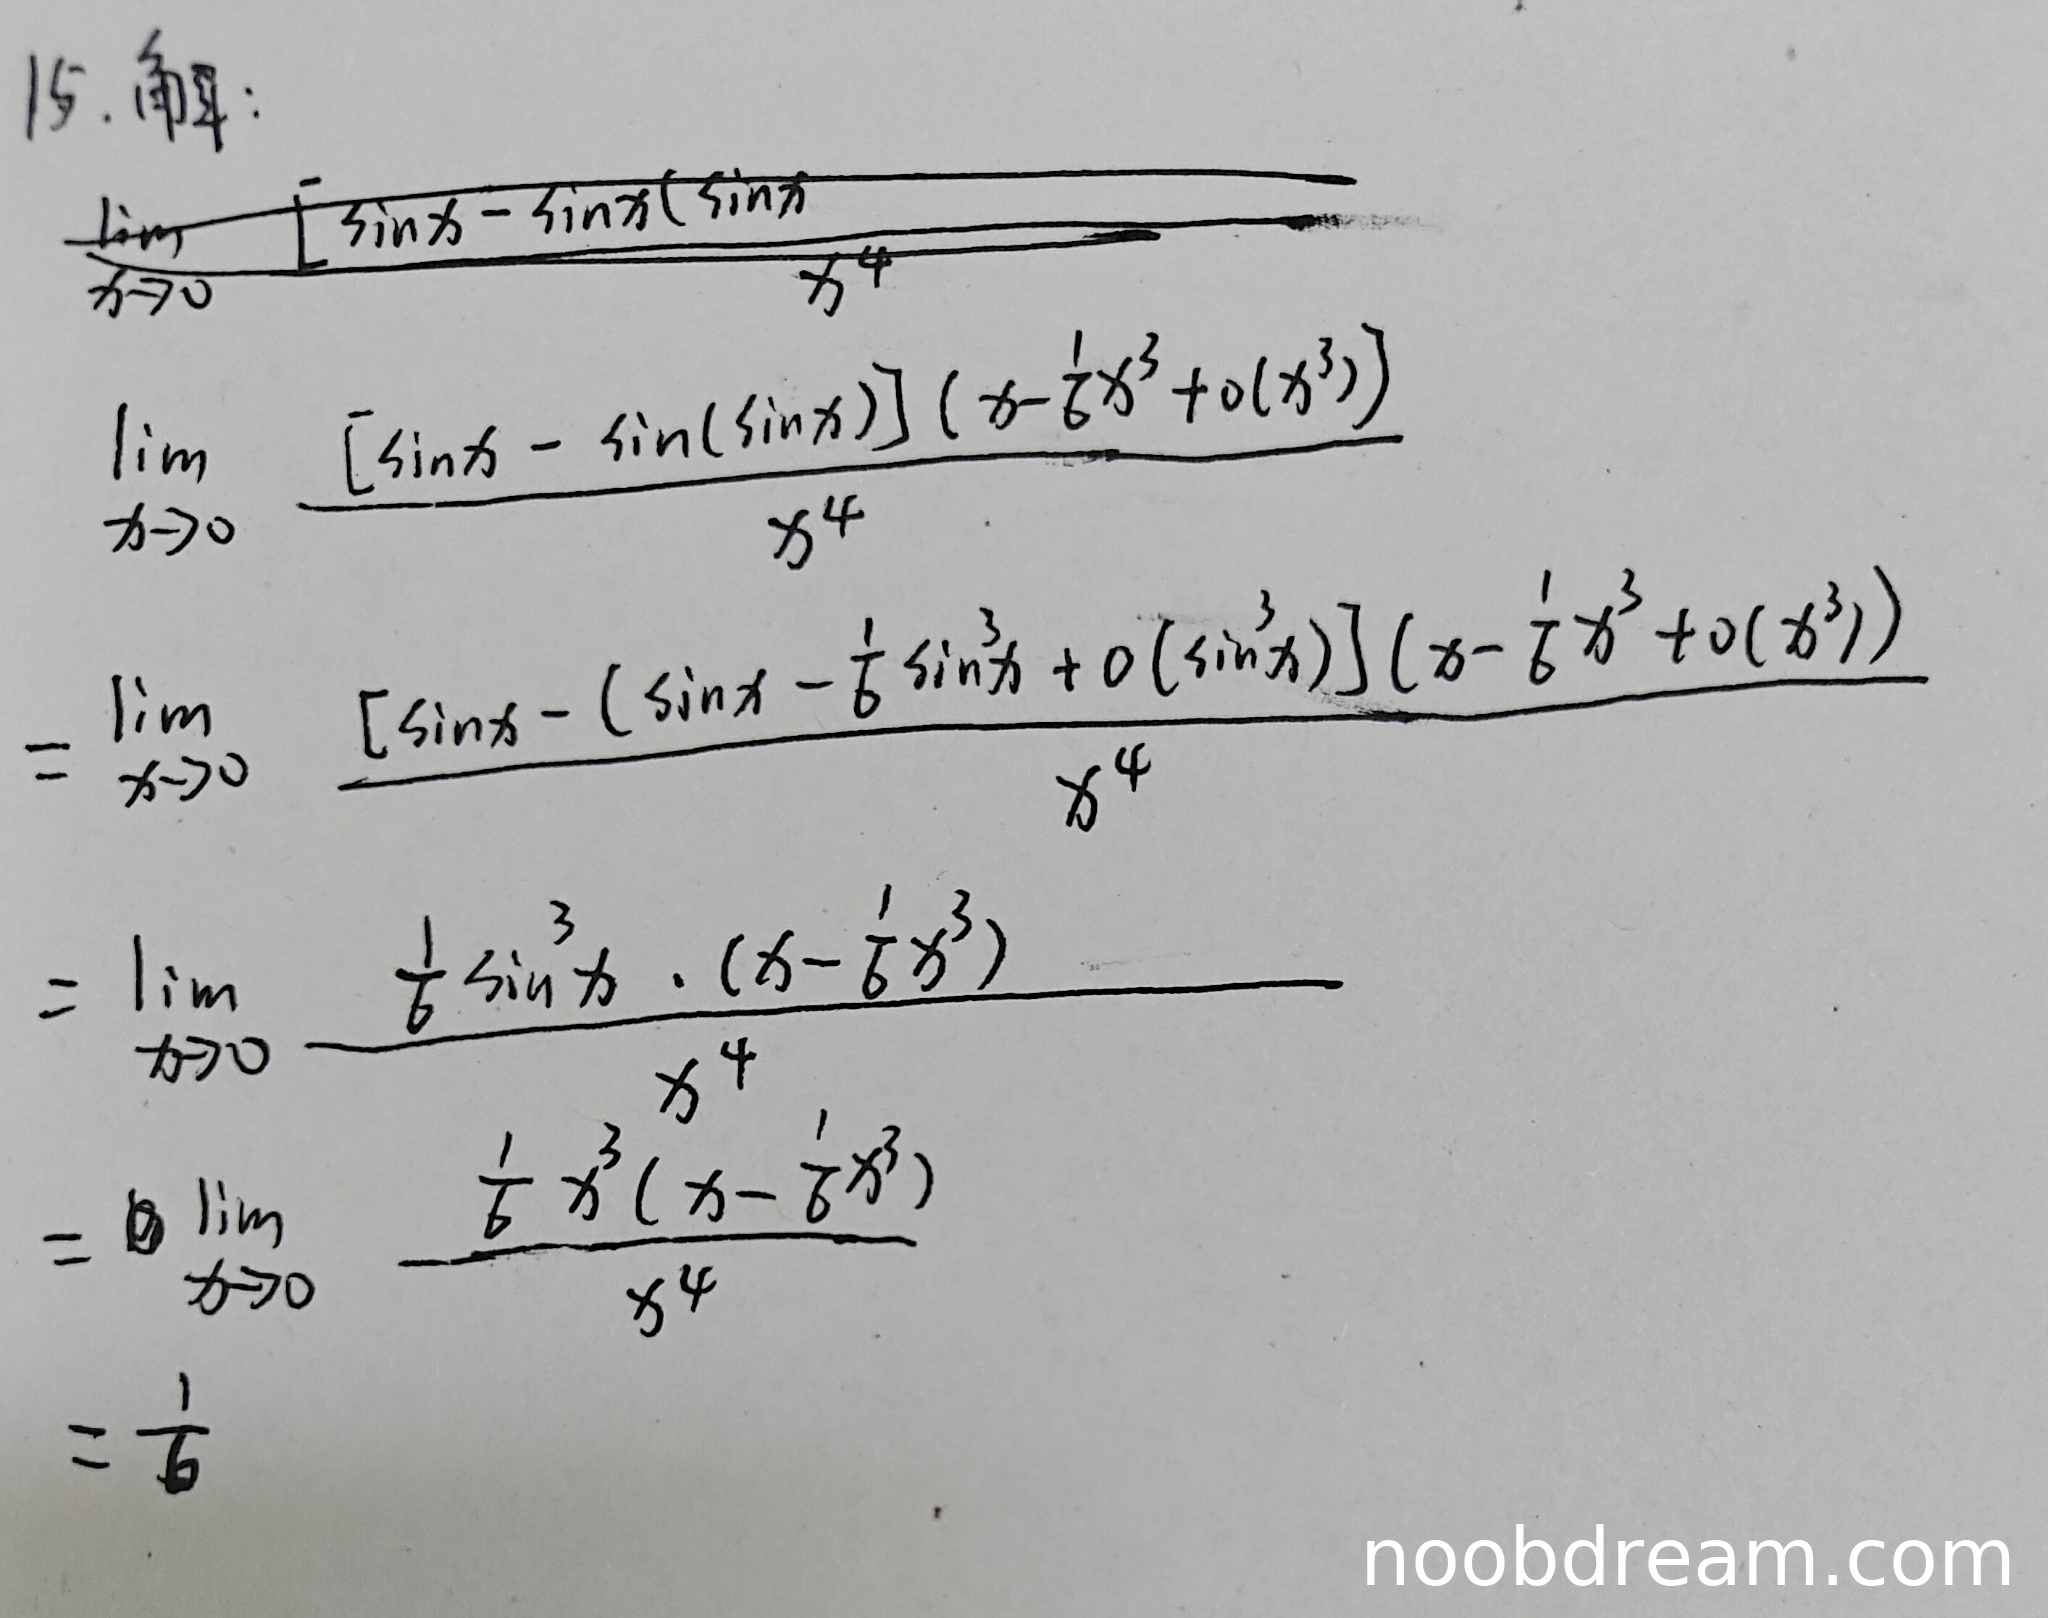 15. 解:
lim x→0 [sinx - sinx(sinx / x^4
lim x→0 [sinx - sin(sinx)](x - 1/6 x^3 + o(x^3)] / x^4
= lim x→0 [sinx - (sinx - 1/6 sin^3x + o(sin^3x)](x - 1/6 x^3 + o(x^3)) / x^4
= lim x→0 1/6 sin^3x · (x - 1/6 x^3) / x^4
= lim x→0 1/6 x^3(x - 1/6 x^3) / x^4
= 1/6
noobdream.com